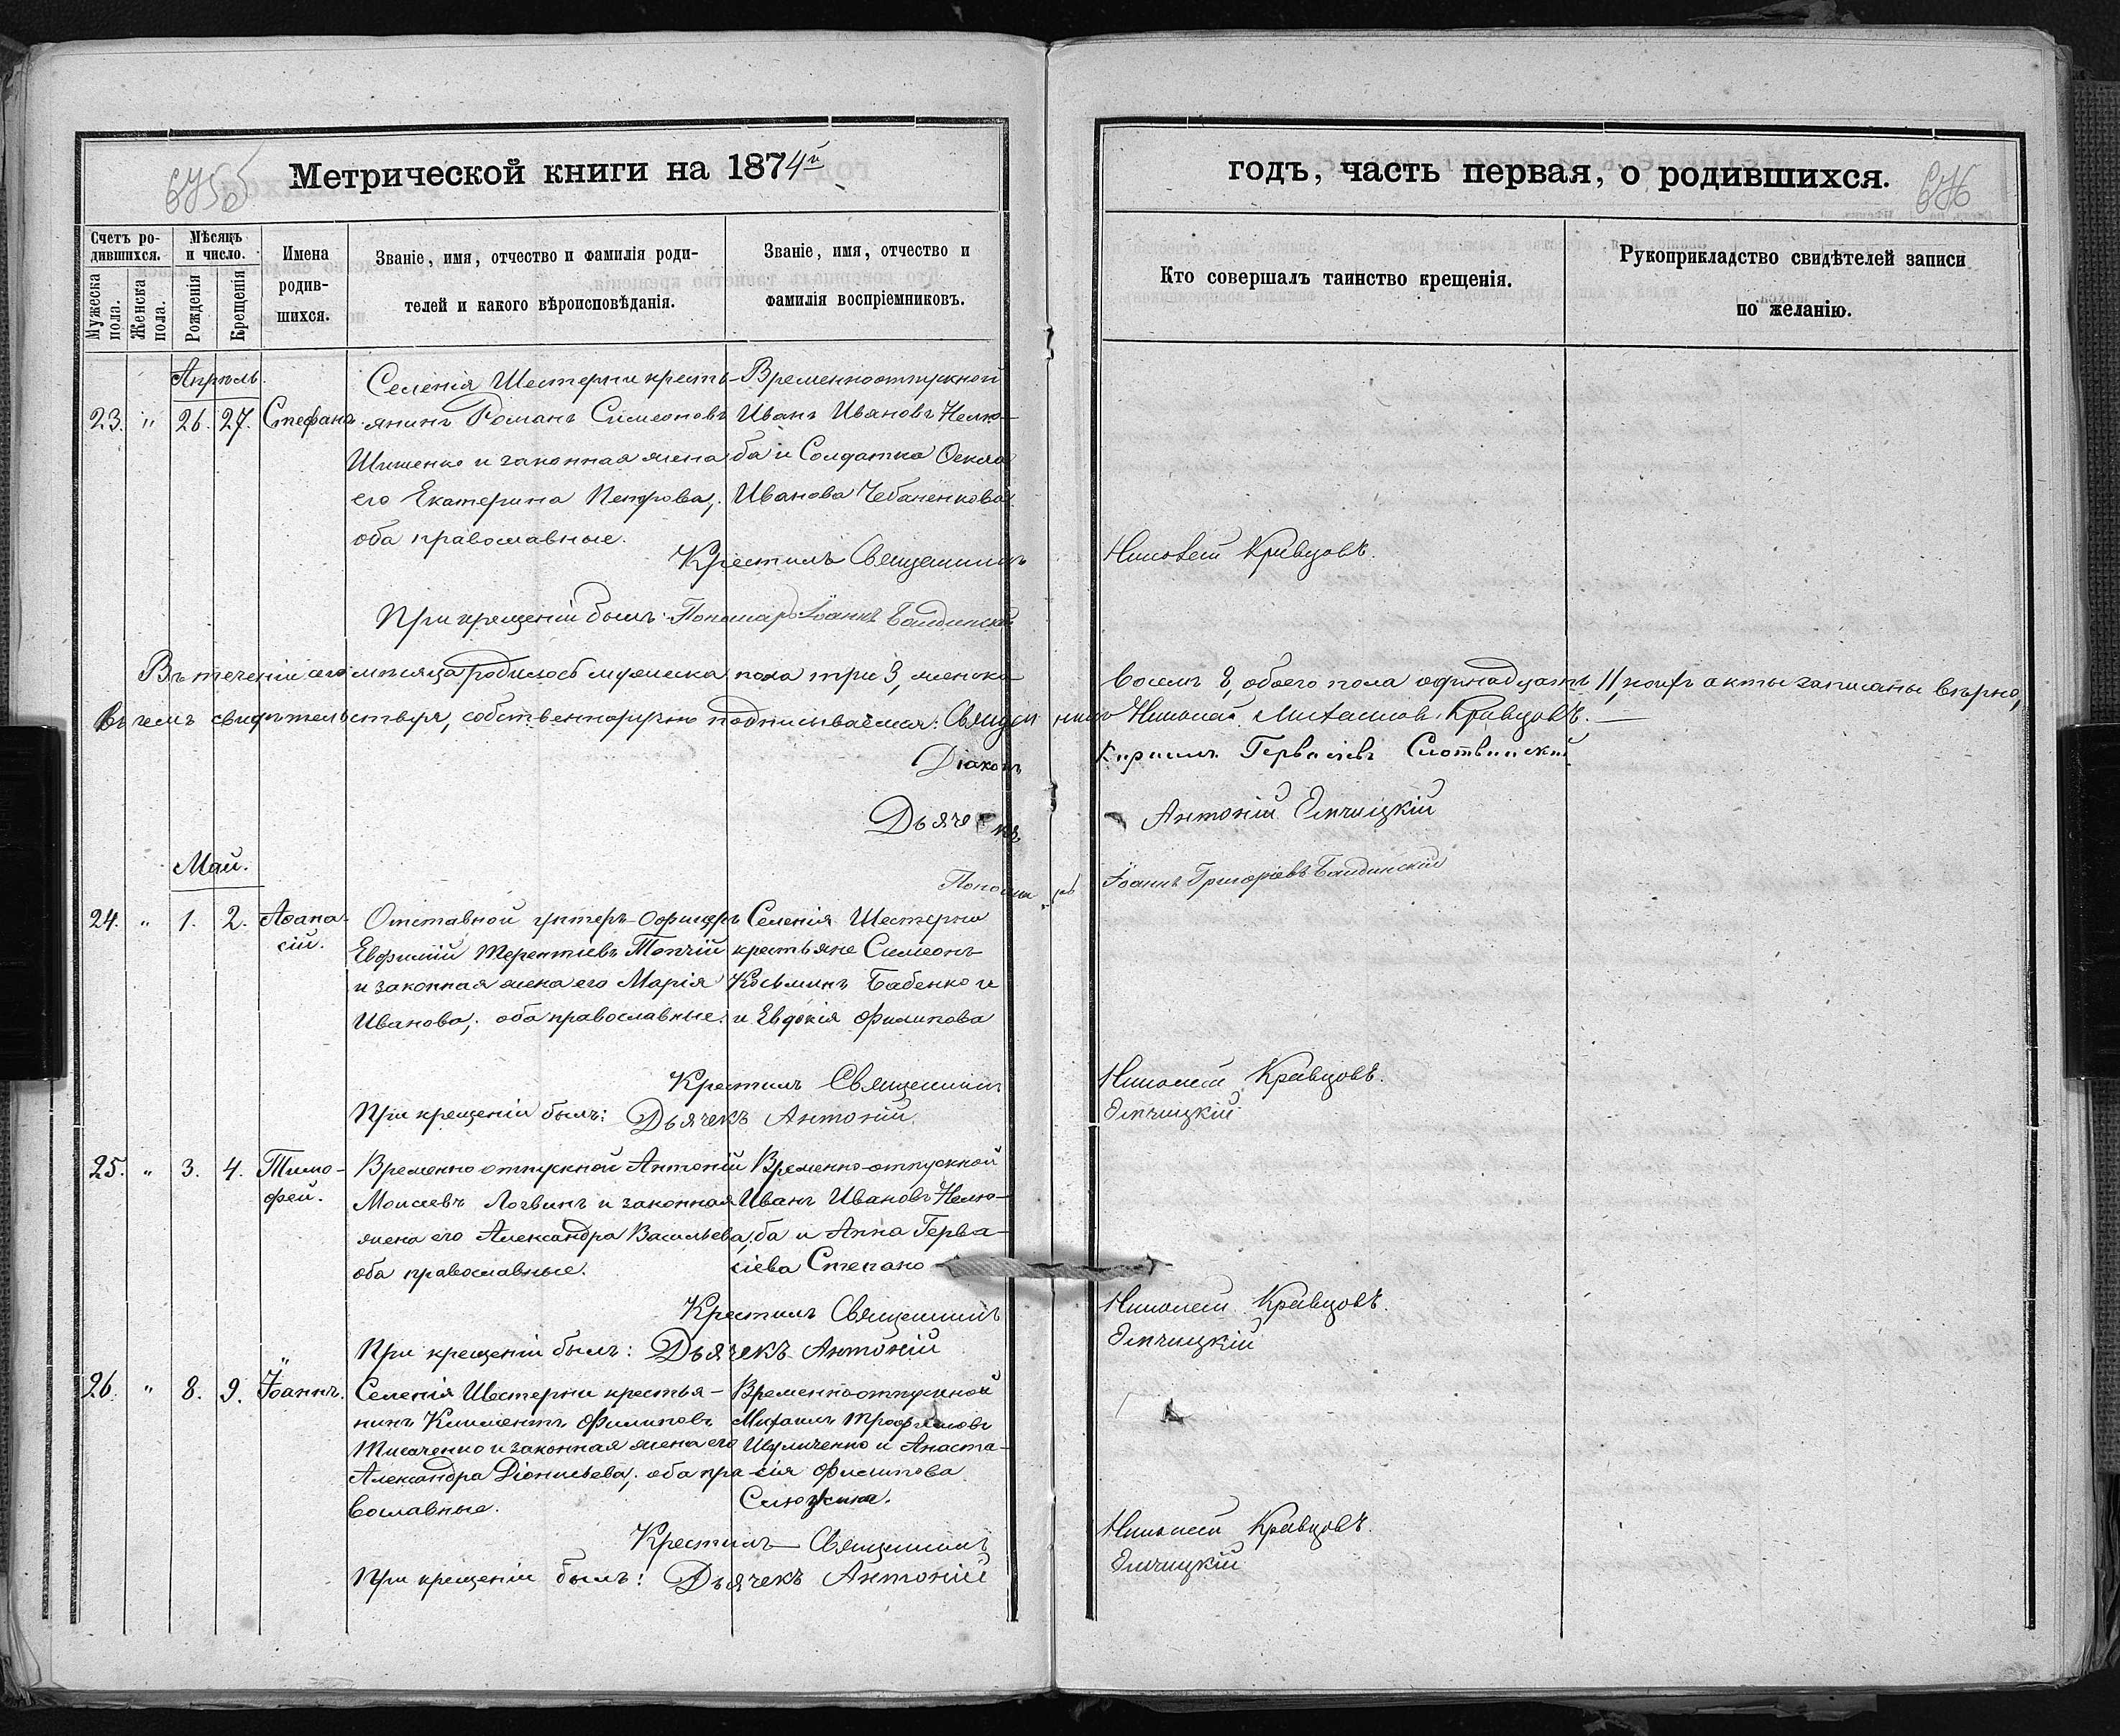 675 б
Метрической книги на 1874й
Счетъ ро-
дившихся.
Мужеска пола.
Женска пола.
Мѣсяцъ и число.
Рожденія
Крещенія
Имена родив-
шихся.
Званіе, имя, отчество и фамилія роди-
телей и какого вѣроисповѣданія.
Званіе, имя, отчество и
фамилія воспріемниковъ.
Апрѣль.
23. " 26. 27. Стефанъ.
Селенія Шестерни кресть-
янинъ Романъ Симеоновъ
Шишенко и законная жена
его Екатерина Петрова,
оба православные.
Временноотпускной
Иванъ Ивановъ Нелю-
ба и Солдатка Ѳекла
Иванова Чебаненкова
Крестилъ Священникъ
При крещеніи былъ: Пономарь Іоаннъ
Въ теченіи сего мѣсяца родилось мужеска пола три 3, женска
въ чемъ свидѣтельствуя, собственноручно подписываемся: Священникъ
Діаконъ
Дьячекъ
Пономарь
Май.
24. " 1. 2. Аѳана-
сій.
Отставной унтеръ-офицеръ
Евфимій Терентіевъ Топчій
и законная жена его Марія
Иванова, оба православные.
Селенія Шестерни
крестьяне Симеонъ
Косьминъ Бабенко и
и Евдокія Филипова
Крестилъ Священникъ
При крещеніи былъ: Дьячекъ Антоній
25. " 3. 4. Тимо-
фей.
Временно отпускной Антоній
Моисеевъ Логвинъ и законная
жена его Александра Васильева,
оба православные.
Временно-отпускной
Иванъ Ивановъ Нелю-
ба и Анна Герва-
сіева Степано
Крестилъ Священникъ
При крещеніи былъ: Дьячекъ Антоній
26. " 8. 9. Іоаннъ.
Селенія Шестерни крестья-
нинъ Климентъ Филиповъ
и законная жена его
Александра Діонисьева, оба пра-
вославные.
Временноотпускной
Михаилъ Трофимовъ
Шуличенко и Анаста-
сія Филипова
Крестилъ Священникъ
При крещеніи былъ: Дьячекъ Антоній
годъ, часть первая, о родившихся.
676
Кто совершалъ таинство крещенія.
Рукоприкладство свидѣтелей записи
по желанію.
Николай Кравцовъ.
восемь 8, обоего пола одинадцать 11, коихъ акты записаны вѣрно,
Николай Михаиловъ Кравцовъ.
Кириллъ Гервасіевъ Слотвинскій
Антоній
Іоаннъ Григоріевъ
Николай Кравцовъ.
Николай Кравцовъ.
Николай Кравцовъ.